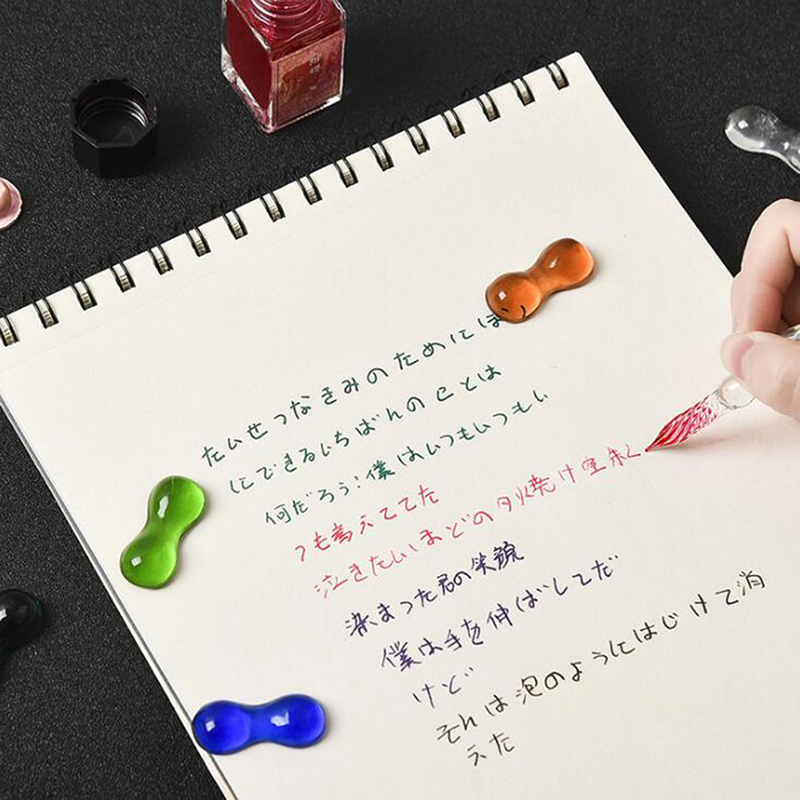 たいせつなきみのためにぼ
にできるいちばんのことは
何だろう？僕はいつもいつもい
つも考えてた
泣きたいほどの夕焼け空朱く
染まった君の笑顔
僕は手を伸ばしてだ
けど
それは泡のようにはじけて消
えた